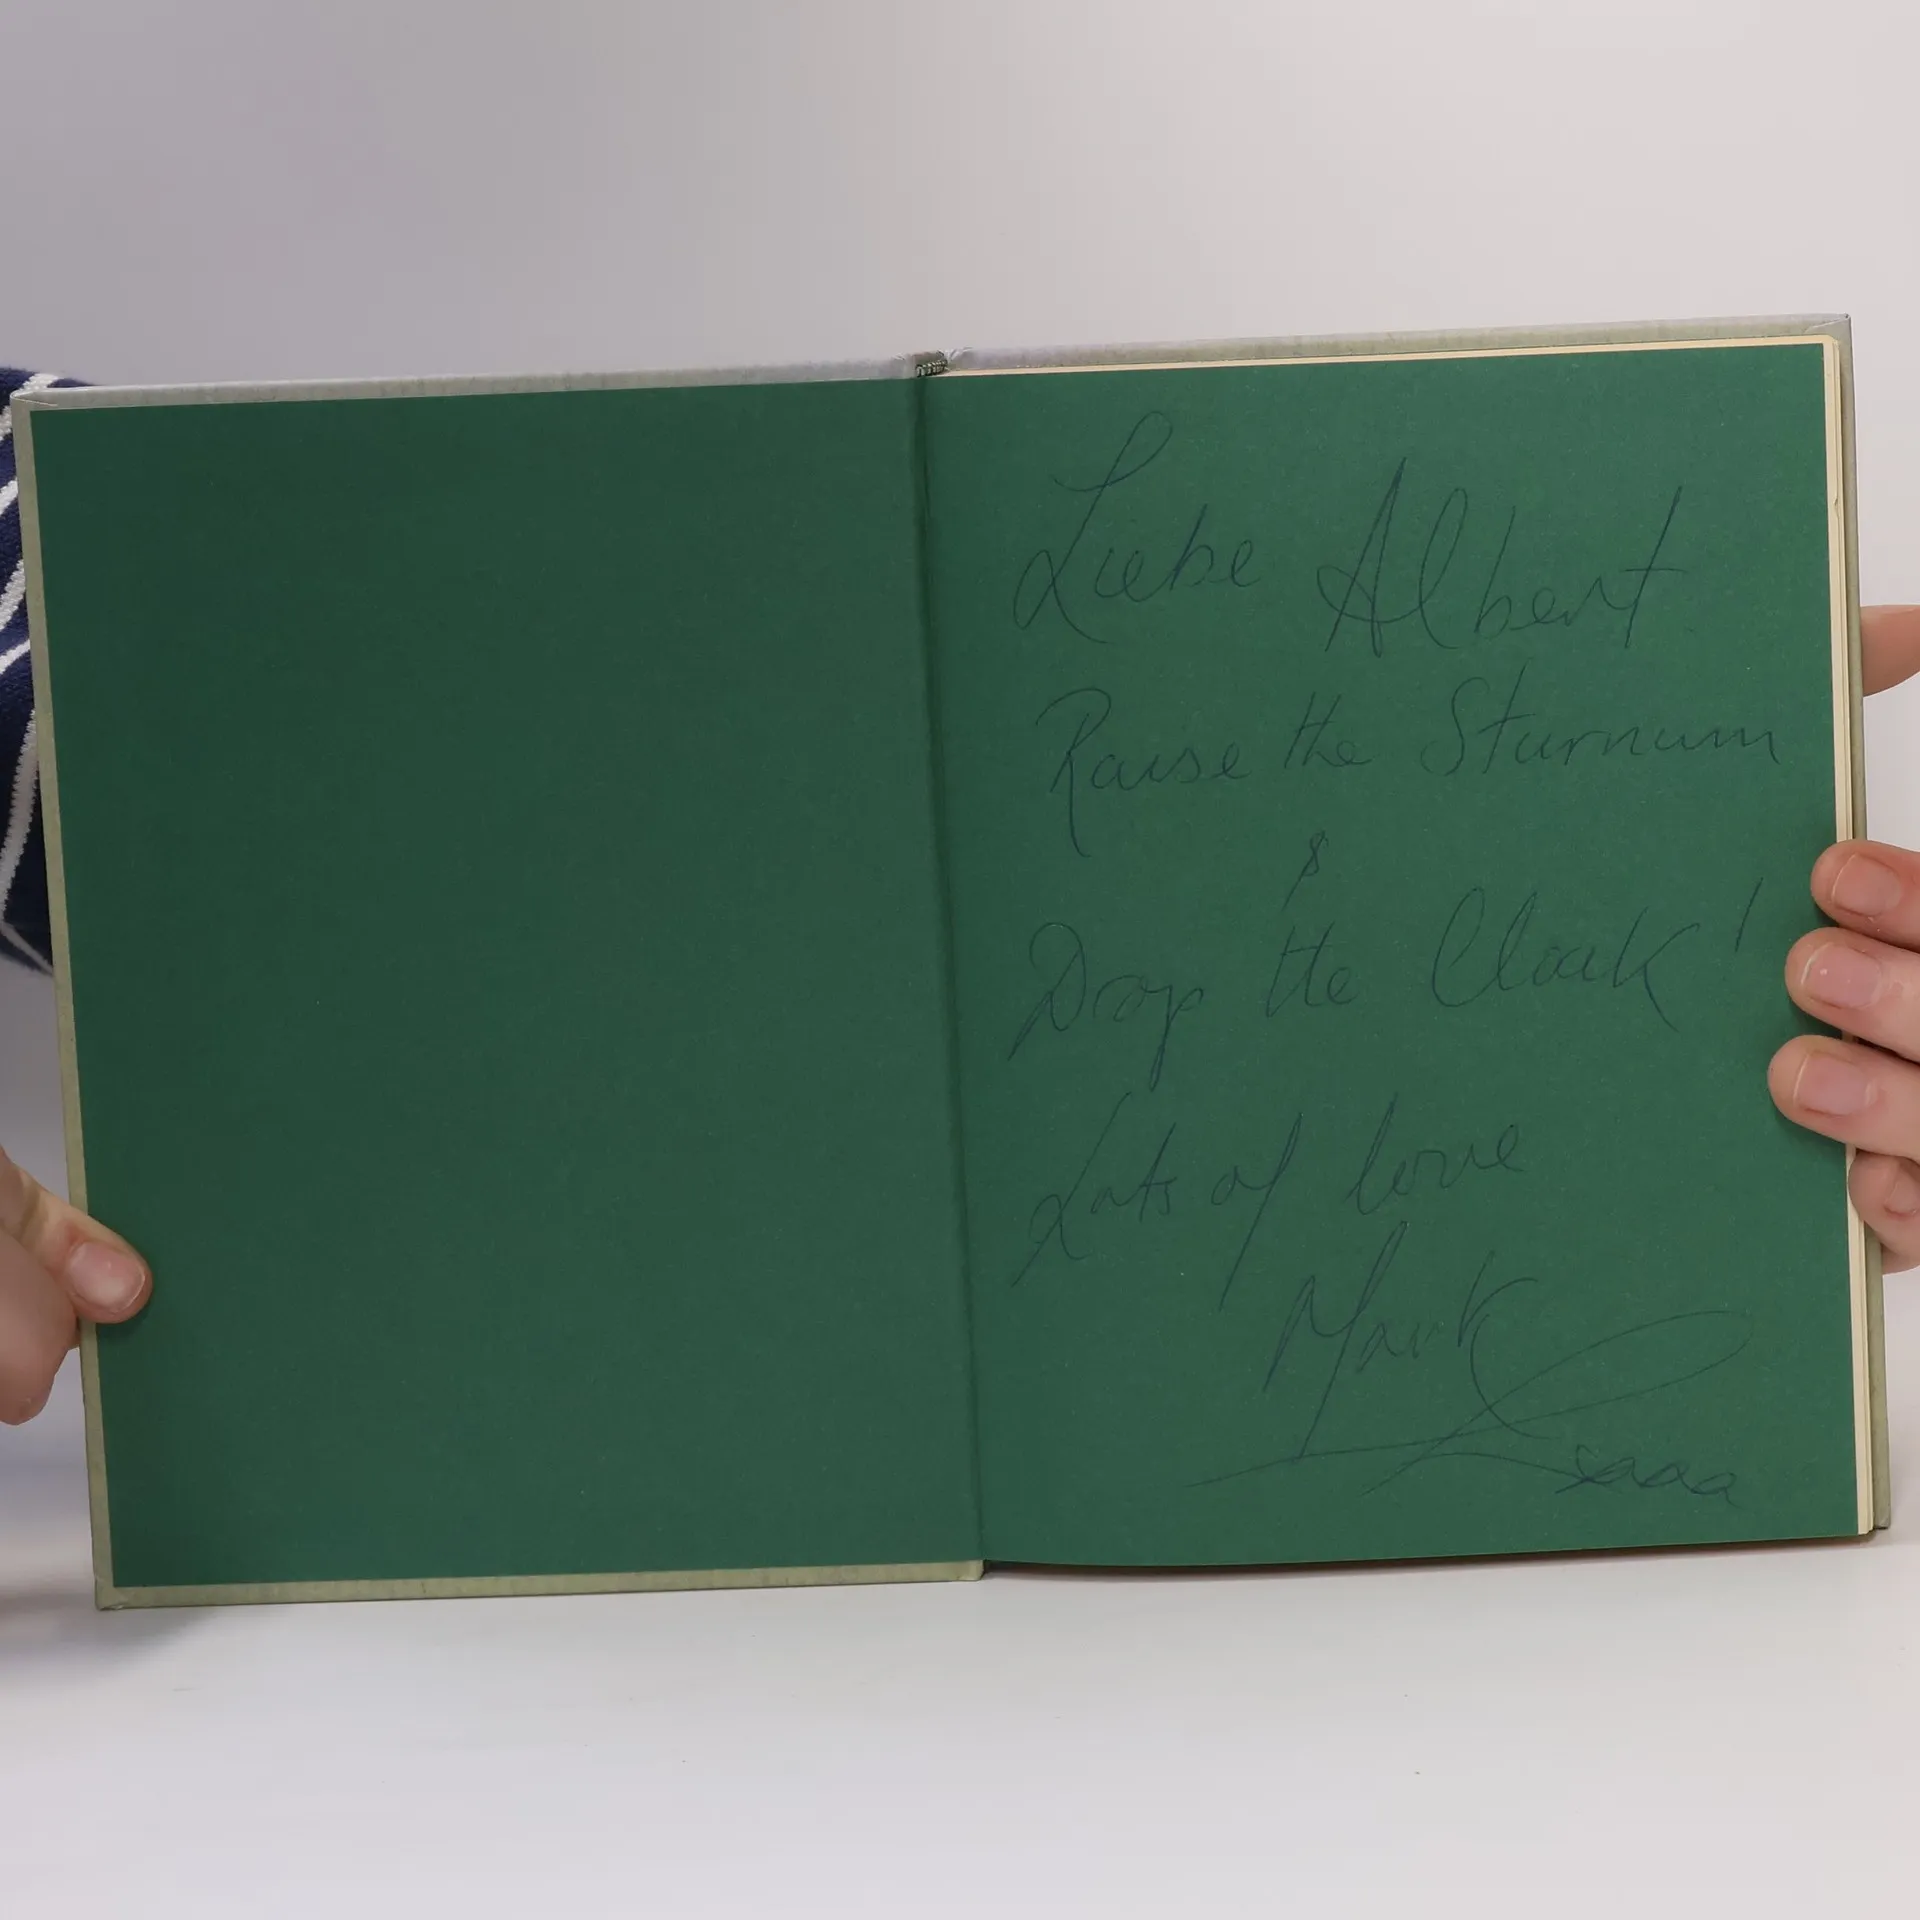 Liebe Albert
Raise the Sturnum
&
Drop the Cloak!
Lots of love
Mark
xxxx